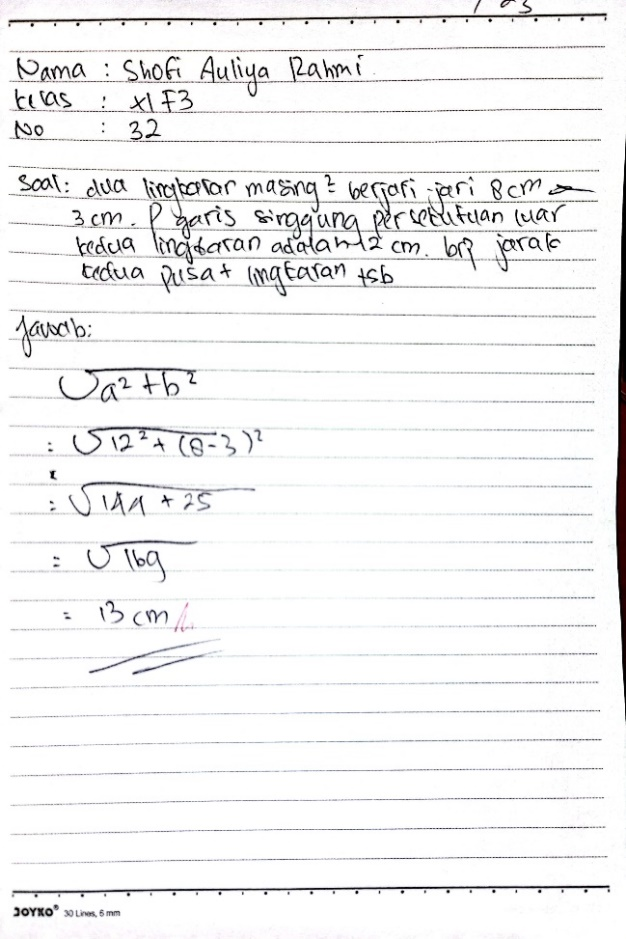 Nama : Shofi Auliya Rahmi
kelas : XI F3
No : 32
Soal: dua lingkaran masing² berjari-jari 8 cm
3 cm. P garis singgung persekutuan luar
kedua lingkaran adalah 12 cm. brp jarak
kedua pusat lingkaran tsb
Jawab:
√a² + b²
: √12² + (8-3)²
= √144 + 25
= √169
= 13 cm
JOYKO® 30 Lines, 6 mm